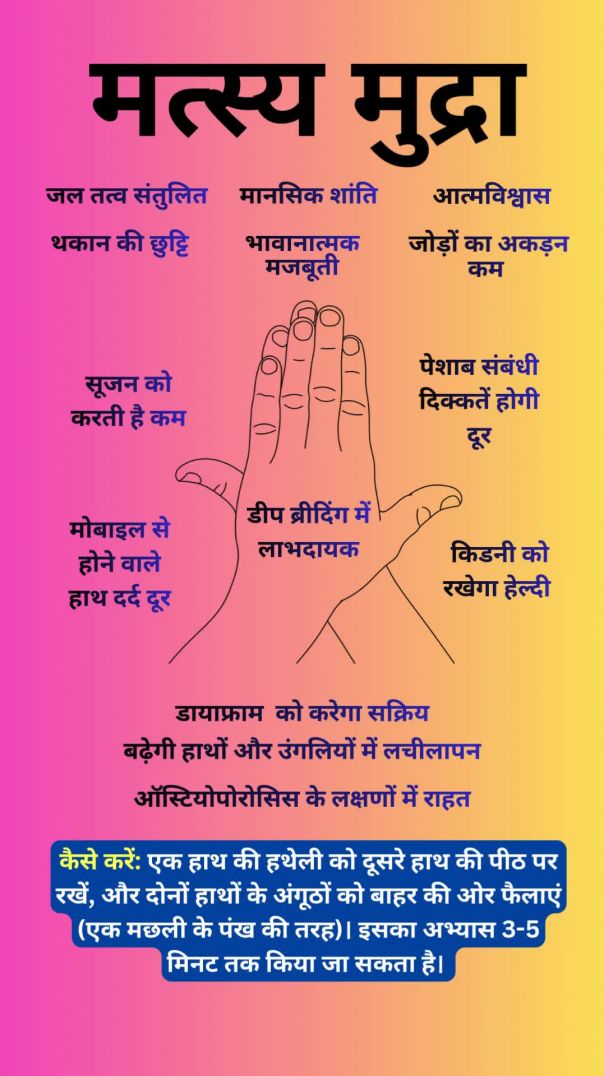 मत्स्य मुद्रा
जल तत्व संतुलित
मानसिक शांति
आत्मविश्वास
थकान की छुट्टि
भावानात्मक
मजबूती
जोड़ों का अकड़न
कम
सूजन को
करती है कम
पेशाब संबंधी
दिक्कतें होगी
दूर
डीप ब्रीदिंग में
लाभदायक
मोबाइल से
होने वाले
हाथ दर्द दूर
किडनी को
रखेगा हेल्दी
डायाफ्राम को करेगा सक्रिय
बढ़ेगी हाथों और उंगलियों में लचीलापन
ऑस्टियोपोरोसिस के लक्षणों में राहत
कैसे करें: एक हाथ की हथेली को दूसरे हाथ की पीठ पर
रखें, और दोनों हाथों के अंगूठों को बाहर की ओर फैलाएं
(एक मछली के पंख की तरह)। इसका अभ्यास 3-5
मिनट तक किया जा सकता है।